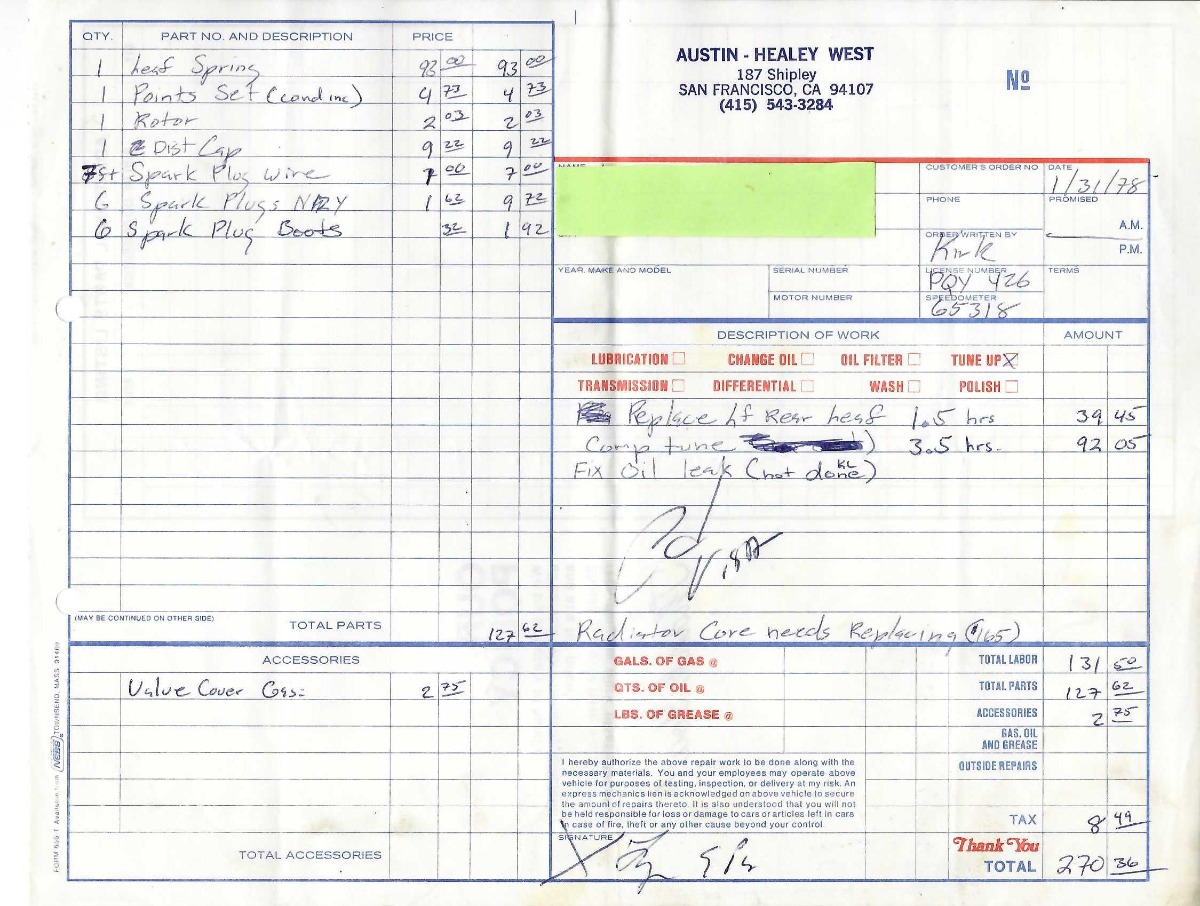 QTY. PART NO. AND DESCRIPTION PRICE
1 Leaf Spring 93 00 93 00
1 Points Set (cond inc) 4 73 4 73
1 Rotor 2 03 2 03
1 Dist Cap 9 22 9 22
7st Spark Plug Wire 1 00 7 00
6 Spark Plugs N12Y 1 62 9 72
6 Spark Plug Boots 32 1 92
(MAY BE CONTINUED ON OTHER SIDE) TOTAL PARTS 127 62
ACCESSORIES
Valve Cover Gas: 2 75
TOTAL ACCESSORIES
AUSTIN - HEALEY WEST
187 Shipley
SAN FRANCISCO, CA 94107
(415) 543-3284
Nº
CUSTOMER'S ORDER NO DATE 1/31/78
PHONE PROMISED
A.M.
ORDER WRITTEN BY Kirk P.M.
YEAR, MAKE AND MODEL SERIAL NUMBER LICENSE NUMBER PQY 426 TERMS
MOTOR NUMBER SPEEDOMETER 65318
DESCRIPTION OF WORK AMOUNT
LUBRICATION CHANGE OIL OIL FILTER TUNE UP X
TRANSMISSION DIFFERENTIAL WASH POLISH
Replace Lf Rear Leaf 1.5 hrs 39 45
Comp tune 3.5 hrs. 92 05
Fix Oil leak (not done KL)
Radiator Core needs Replacing ($165)
GALS. OF GAS @ TOTAL LABOR 131 50
QTS. OF OIL @ TOTAL PARTS 127 62
LBS. OF GREASE @ ACCESSORIES 2 75
GAS, OIL
AND GREASE
OUTSIDE REPAIRS
I hereby authorize the above repair work to be done along with the
necessary materials. You and your employees may operate above
vehicle for purposes of testing, inspection, or delivery at my risk. An
express mechanics lien is acknowledged on above vehicle to secure
the amount of repairs thereto. It is also understood that you will not
be held responsible for loss or damage to cars or articles left in cars
in case of fire, theft or any other cause beyond your control.
TAX 8 49
SIGNATURE X
Thank You
TOTAL 270 36